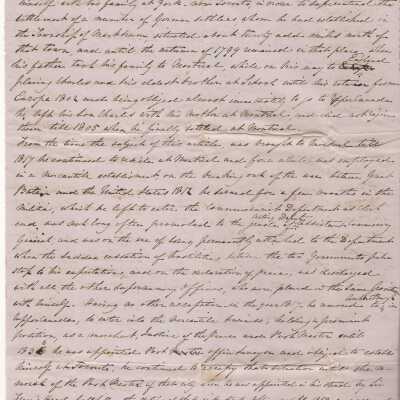 himself with his family at York, now Toronto, in order to superintend the
settlement of a number of German settlers whom he had established in
the Township of Markham situated about twenty odd miles north of
that town, and until the autumn of 1799 remained in that place, when
his father took his family to Montreal, while on his way to England
placing Charles and his eldest brother at School until his return from
Europe 1802 and being obliged almost immediately to go to Upper Canada
he left his son Charles with his mother at Montreal, and did not
them till 1805 when he finally settled at Montreal.
From the time the subject of this article was brought to Montreal till
1817 he continued to reside at Montreal and for a while was employed
in a mercantile establishment on the breaking out of the war between Great
Britain and the United States 1812 he served for a few months in the
Militia, which he left to enter the Commissariat Department as Clerk
and was not long after promoted to the grade of Acting Deputy Assistant Commissary
General and was on the eve of being permanently attached to the Department
when the sudden cessation of hostilities, between the two Governments put a
stop to his expectations, and on the declaration of peace, was discharged
with all the other supernumerary Officers, who were placed in the same
with himself. Having no other occupation in the year 1817, he
opportunities, to enter into the mercantile business, holding a prominent
position, as a merchant, Justice of the Peace and Post Master until
183 he was appointed Post office Surveyor and obliged to establish
himself at Toronto, he continued to occupy that situation until the
of the Post Master of that city when he was appointed in his stead by Sir